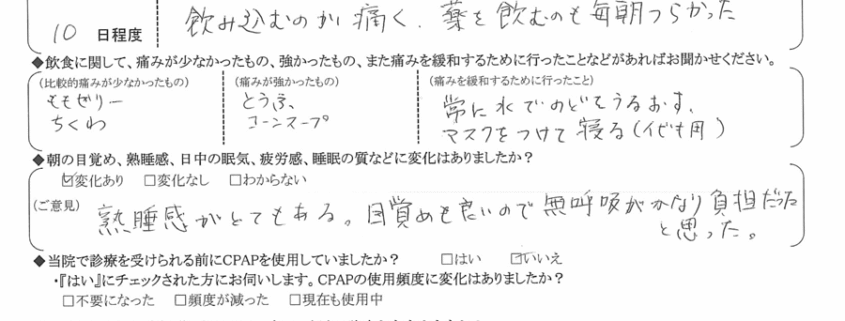 飲み込むのが痛く、薬を飲むのも毎朝つらかった
10 日程度
◆飲食に関して、痛みが少なかったもの、強かったもの、また痛みを緩和するために行ったことなどがあればお聞かせください。
(比較的痛みが少なかったもの) (痛みが強かったもの) (痛みを緩和するために行ったこと)
ももゼリー とうふ、 常に水でのどをうるおす、
ちくわ コーンスープ マスクをつけて寝る(イビキ用)
◆朝の目覚め、熟睡感、日中の眠気、疲労感、睡眠の質などに変化はありましたか?
☑変化あり □変化なし □わからない
(ご意見) 熟睡感がとてもある。目覚めも良いので無呼吸がかなり負担だった
と思った。
◆当院で診療を受けられる前にCPAPを使用していましたか? □はい ☑いいえ
・『はい』にチェックされた方にお伺いします。CPAPの使用頻度に変化はありましたか?
□不要になった □頻度が減った □現在も使用中